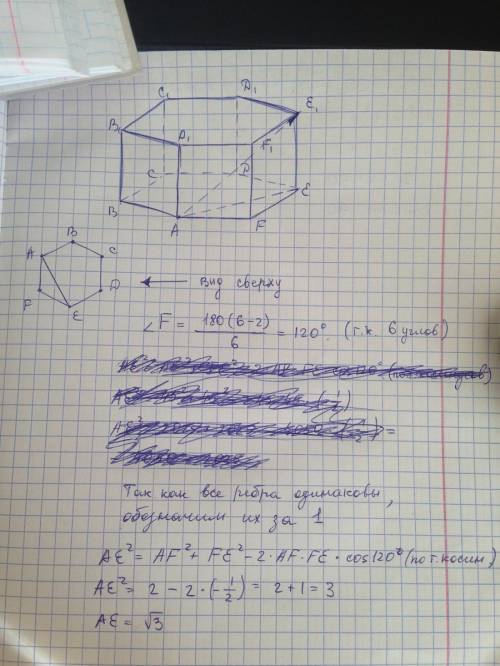 C₁ D₁
E₁
B₁ A₁
F₁
C D
E
B
A F
B
A C
F D
E
← вид сверху
∠F = 180(6-2)/6 = 120° (т.к. 6 углов)
Так как все ребра одинаковы,
обозначим их за 1
AE² = AF² + FE² - 2·AF·FE·cos120° (по т.косин.)
AE² = 2 - 2·(-1/2) = 2+1 = 3
AE = √3